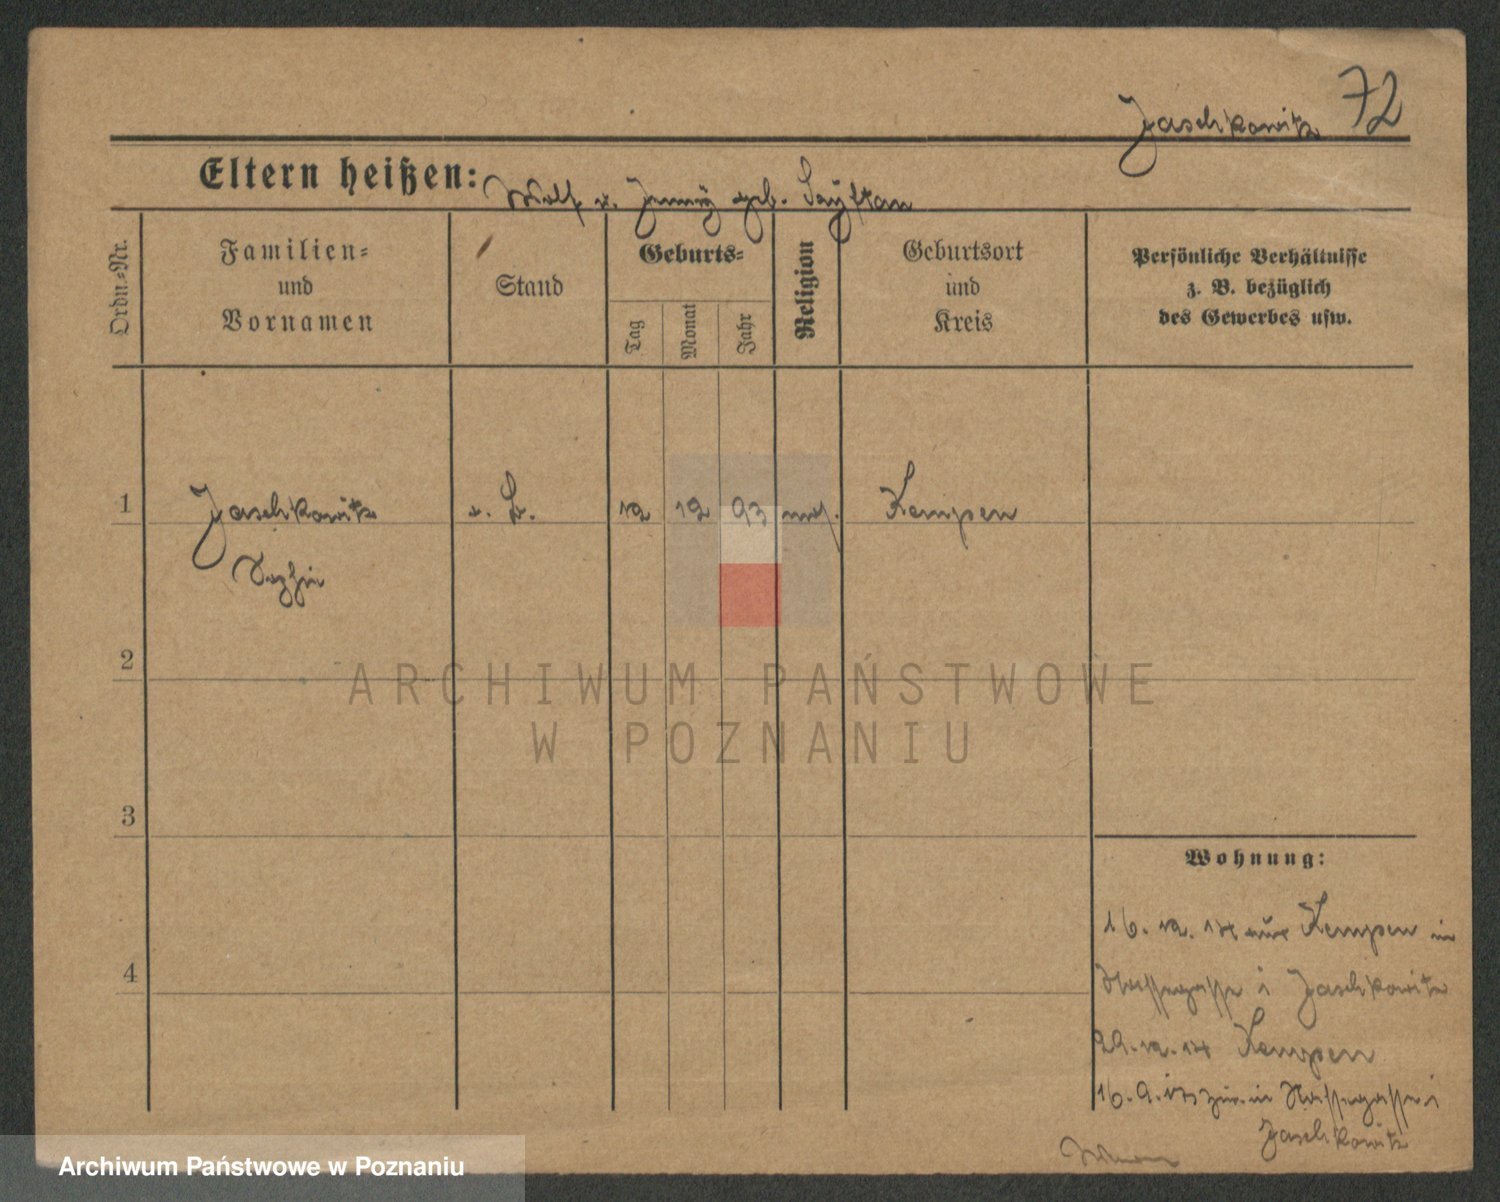 Jaschkowitz 72
Eltern heißen: Wolf u. Jenny geb. Seyftan
Ordn.-Nr.
Familien-
und
Vornamen
Stand
Geburts-
Tag
Monat
Jahr
Religion
Geburtsort
und
Kreis
Persönliche Verhältnisse
z. B. bezüglich
des Gewerbes usw.
1 Jaschkowitz 12 12 93 mos. Kempen
2
3
4
Wohnung:
16. 12. aus Kempen in
i Jaschkowitz
29. 12. Kempen
16. 9. in
Jaschkowitz
ARCHIWUM PAŃSTWOWE
W POZNANIU
Archiwum Państwowe w Poznaniu